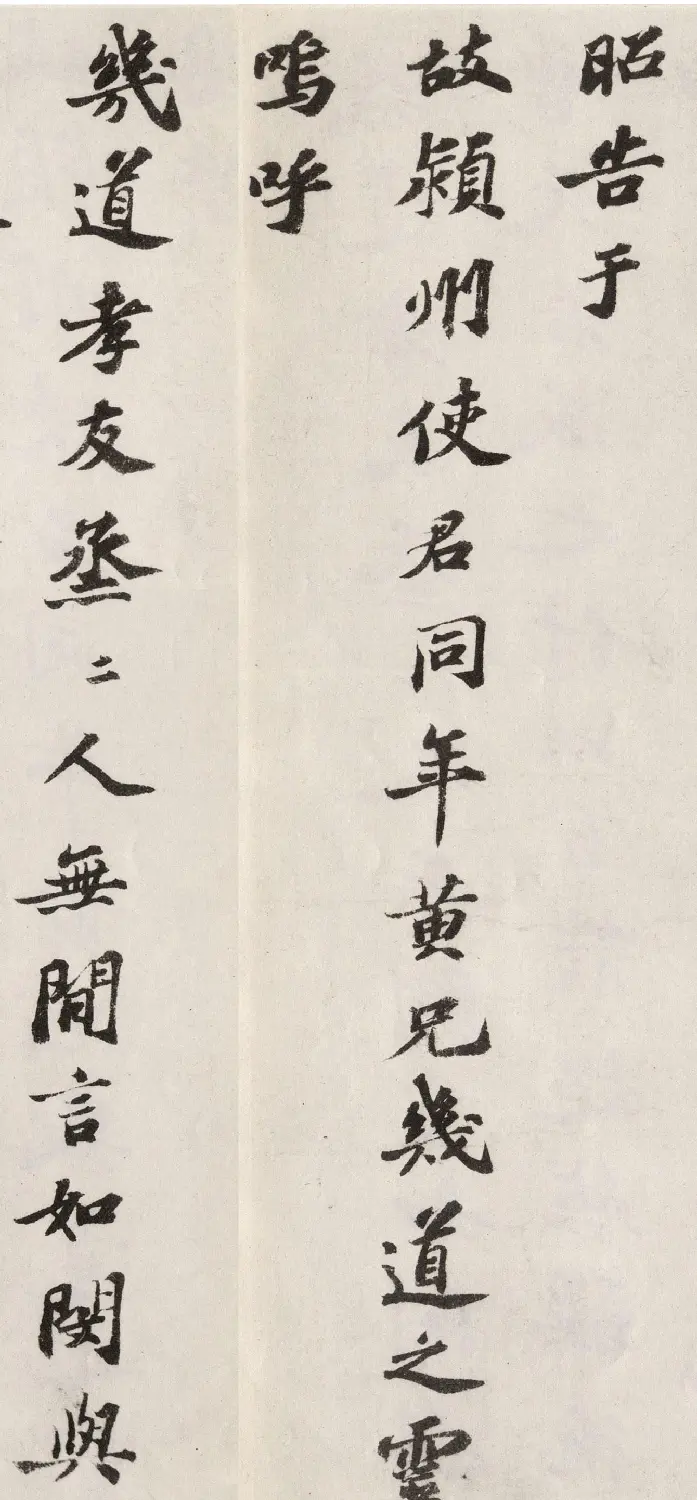 昭告于
故潁州使君同年黄兄幾道之靈
嗚呼
幾道孝友烝二人無閒言如閔與